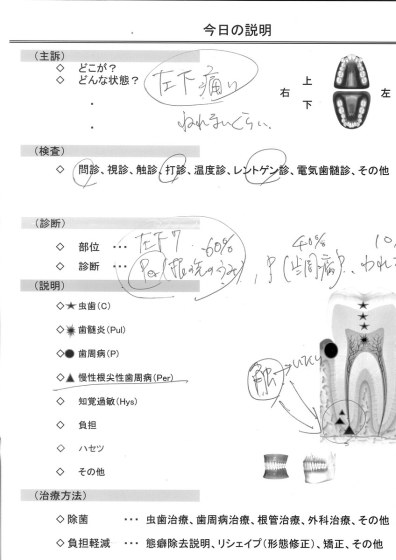 今日の説明
(主訴)
◇ どこが?
◇ どんな状態?
・
・
左下痛い
ねれないくらい
上
右 左
下
(検査)
◇ 問診、視診、触診、打診、温度診、レントゲン診、電気歯髄診、その他
(診断)
◇ 部位 ・・・ 左下7 60% 40% 10
◇ 診断 ・・・ Per(根の先のうみ)、P(歯周病)、われ
(説明)
◇★ 虫歯(C)
◇ 歯髄炎(Pul)
◇● 歯周病(P)
◇▲ 慢性根尖性歯周病(Per)
◇ 知覚過敏(Hys)
◇ 負担
◇ ハセツ
◇ その他
(治療方法)
◇除菌 ・・・ 虫歯治療、歯周病治療、根管治療、外科治療、その他
◇負担軽減 ・・・ 態癖除去説明、リシェイプ(形態修正)、矯正、その他